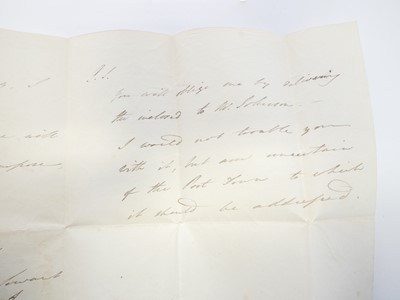 P.S.
You will oblige me by delivering
the inclosed to Mr Johnson. —
I would not trouble you
with it, but am uncertain
of the Post Town to which
it should be addressed.
with